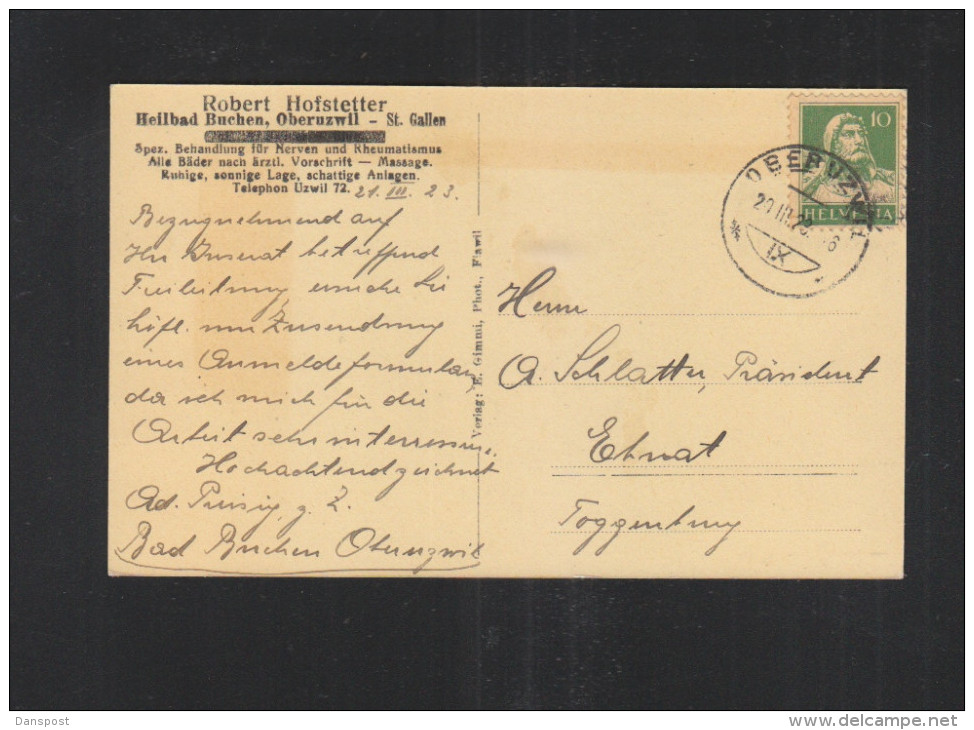 Robert Hofstetter
Heilbad Buchen, Oberuzwil - St. Gallen
Spez. Behandlung für Nerven und Rheumatismus
Alle Bäder nach ärztl. Vorschrift — Massage.
Ruhige, sonnige Lage, schattige Anlagen.
Telephon Uzwil 72.
21. III. 23.
Bezugnehmend auf
Ihr Inserat betreffend
Freileitung, ersuche Sie
höfl. um Zusendung
eines Anmeldeformulars,
da ich mich für die
Arbeit sehr interressiere.
Hochachtend zeichnet
Ad. z. Z.
Bad Buchen Oberuzwil
Verlag: E. Gimmi, Phot., Flawil
10
HELVETIA
OBERUZWIL
IX
Herrn
A. Schlatter, Präsident
Ebnat
Toggenburg
Danspost
www.delcampe.net